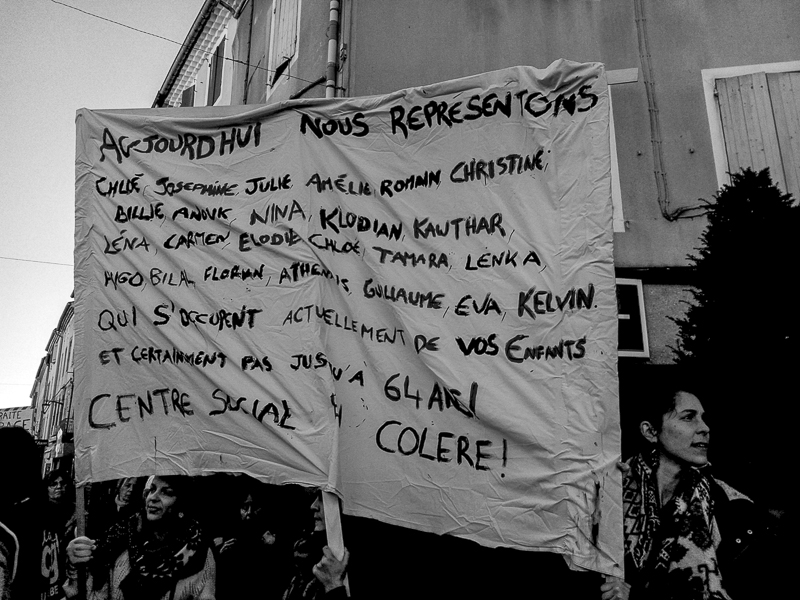 AUJOURD'HUI NOUS REPRESENTONS
CHLOÉ, JOSEPHINE, JULIE, AMÉLIE, ROMAIN, CHRISTINE,
BILLIE, ANOUK, NINA, KLODIAN, KAUTHAR,
LÉNA, CARMEN, ELODIE, CHLOÉ, TAMARA, LENKA,
HUGO, BILAL, FLORIAN, ATHENAIS, GUILLAUME, EVA, KELVIN.
QUI S'OCCUPENT ACTUELLEMENT DE VOS ENFANTS
ET CERTAINMENT PAS JUSQU'A 64 ANS!
CENTRE SOCIAL EN COLERE!